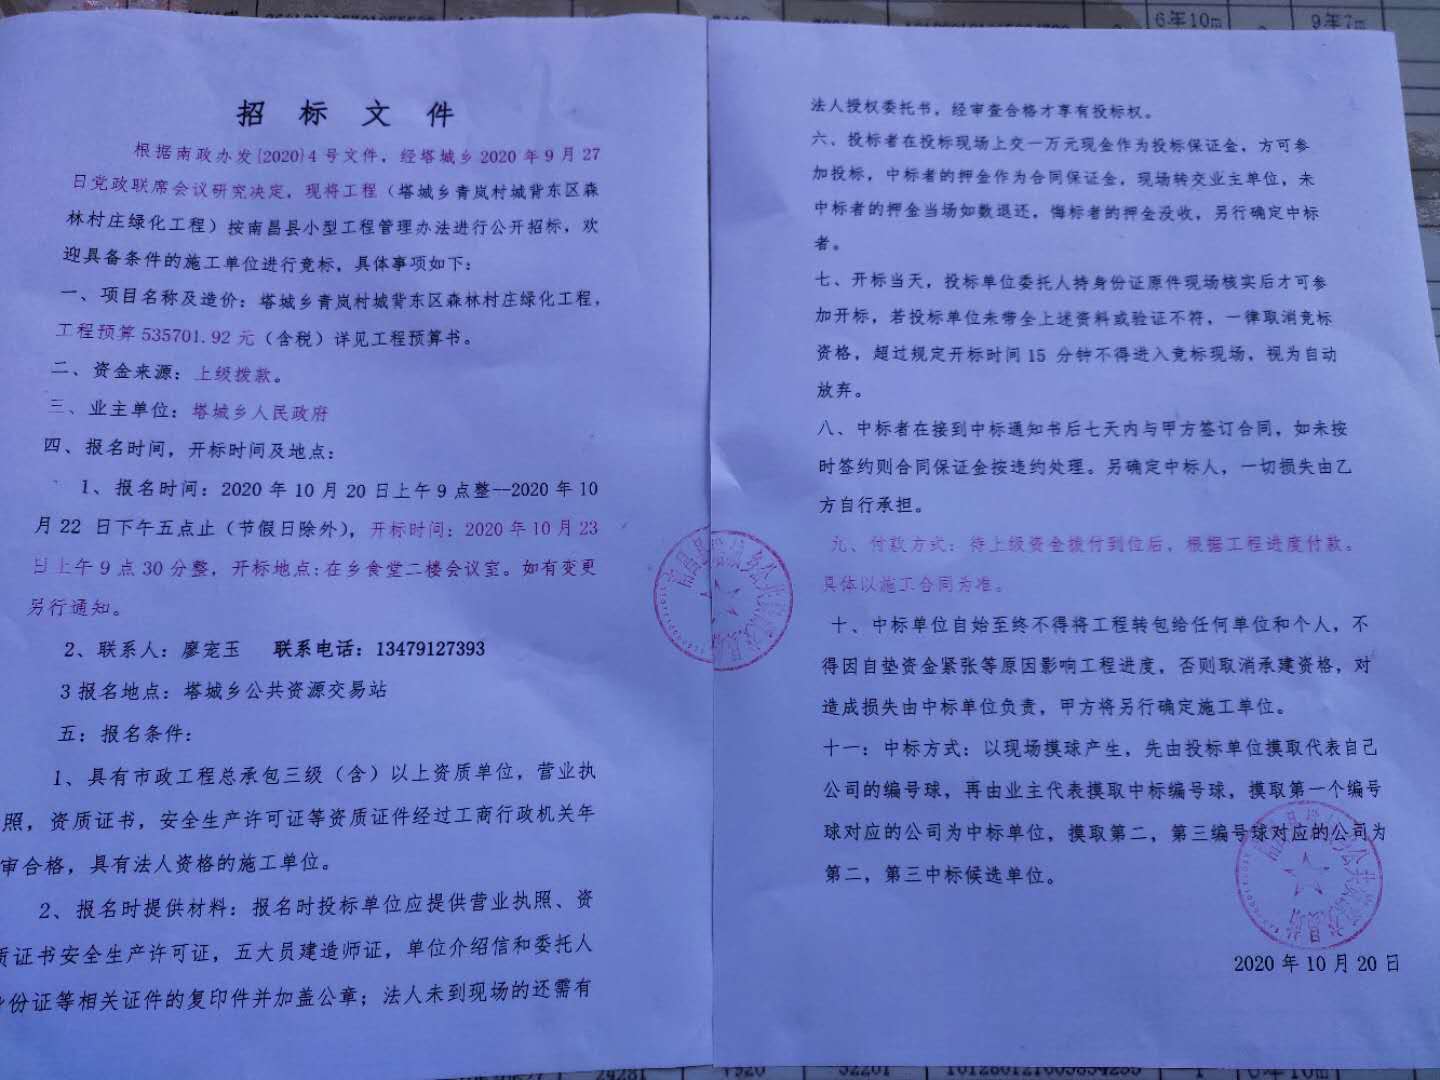 6年10m
9年7m
招 标 文 件
根据南政办发[2020]4号文件，经塔城乡2020年9月27
日党政联席会议研究决定，现将工程（塔城乡青岚村城背东区森
林村庄绿化工程）按南昌县小型工程管理办法进行公开招标，欢
迎具备条件的施工单位进行竞标，具体事项如下：
一、项目名称及造价：塔城乡青岚村城背东区森林村庄绿化工程，
工程预算535701.92元（含税）详见工程预算书。
二、资金来源：上级拨款。
三、业主单位：塔城乡人民政府
四、报名时间，开标时间及地点：
1、报名时间：2020年10月20日上午9点整--2020年10
月22 日下午五点止（节假日除外），开标时间：2020年10月23
日上午9点30分整，开标地点:在乡食堂二楼会议室。如有变更
另行通知。
2、联系人：廖宠玉 联系电话：13479127393
3报名地点：塔城乡公共资源交易站
五：报名条件：
1、具有市政工程总承包三级（含）以上资质单位，营业执
照，资质证书，安全生产许可证等资质证件经过工商行政机关年
审合格，具有法人资格的施工单位。
2、报名时提供材料：报名时投标单位应提供营业执照、资
质证书安全生产许可证，五大员建造师证，单位介绍信和委托人
身份证等相关证件的复印件并加盖公章；法人未到现场的还需有
法人授权委托书，经审查合格才享有投标权。
六、投标者在投标现场上交一万元现金作为投标保证金，方可参
加投标，中标者的押金作为合同保证金，现场转交业主单位，未
中标者的押金当场如数退还，悔标者的押金没收，另行确定中标
者。
七、开标当天，投标单位委托人持身份证原件现场核实后才可参
加开标，若投标单位未带全上述资料或验证不符，一律取消竞标
资格，超过规定开标时间15 分钟不得进入竞标现场，视为自动
放弃。
八、中标者在接到中标通知书后七天内与甲方签订合同，如未按
时签约则合同保证金按违约处理。另确定中标人，一切损失由乙
方自行承担。
九、付款方式：待上级资金拨付到位后，根据工程进度付款。
具体以施工合同为准。
十、中标单位自始至终不得将工程转包给任何单位和个人，不
得因自垫资金紧张等原因影响工程进度，否则取消承建资格，对
造成损失由中标单位负责，甲方将另行确定施工单位。
十一：中标方式：以现场摸球产生，先由投标单位摸取代表自己
公司的编号球，再由业主代表摸取中标编号球，摸取第一个编号
球对应的公司为中标单位，摸取第二，第三编号球对应的公司为
第二，第三中标候选单位。
2020年10月20日